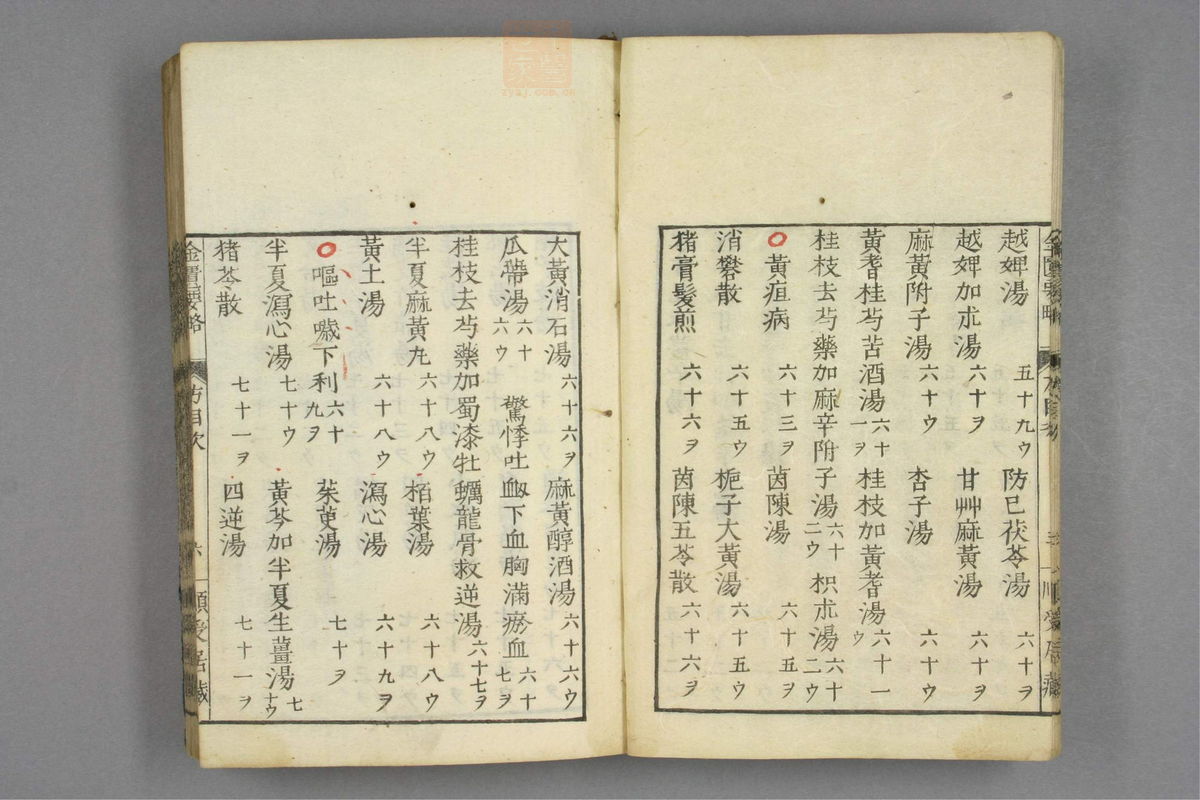 越婢湯 五十九ウ 防已茯苓湯 六十ヲ
越婢加朮湯 六十ヲ 甘艸麻黃湯 六十ヲ
麻黃附子湯 六十ウ 杏子湯 六十ウ
黃耆桂芍苦酒湯 六十一ヲ 桂枝加黃耆湯 六十一ウ
桂枝去芍藥加麻辛附子湯 六十二ウ 枳朮湯 六十二ウ
黃疸病 六十三ヲ 茵陳湯 六十五ヲ
消礬散 六十五ウ 梔子大黃湯 六十五ウ
猪膏髮煎 六十六ヲ 茵陳五苓散 六十六ヲ
大黃消石湯 六十六ヲ 麻黃醇酒湯 六十六ウ
瓜蒂湯 六十六ウ 驚悸吐衂下血胸滿瘀血 六十七ヲ
桂枝去芍藥加蜀漆牡蠣龍骨救逆湯 六十七ヲ
半夏麻黃丸 六十八ウ 栢葉湯 六十八ウ
黃土湯 六十八ウ 瀉心湯 六十九ヲ
嘔吐噦下利 六十九ヲ 茱萸湯 七十ヲ
半夏瀉心湯 七十ウ 黃芩加半夏生薑湯 七十ウ
猪苓散 七十一ヲ 四逆湯 七十一ヲ
金匱要略 方目次 六 順受居藏
zysj.com.cn